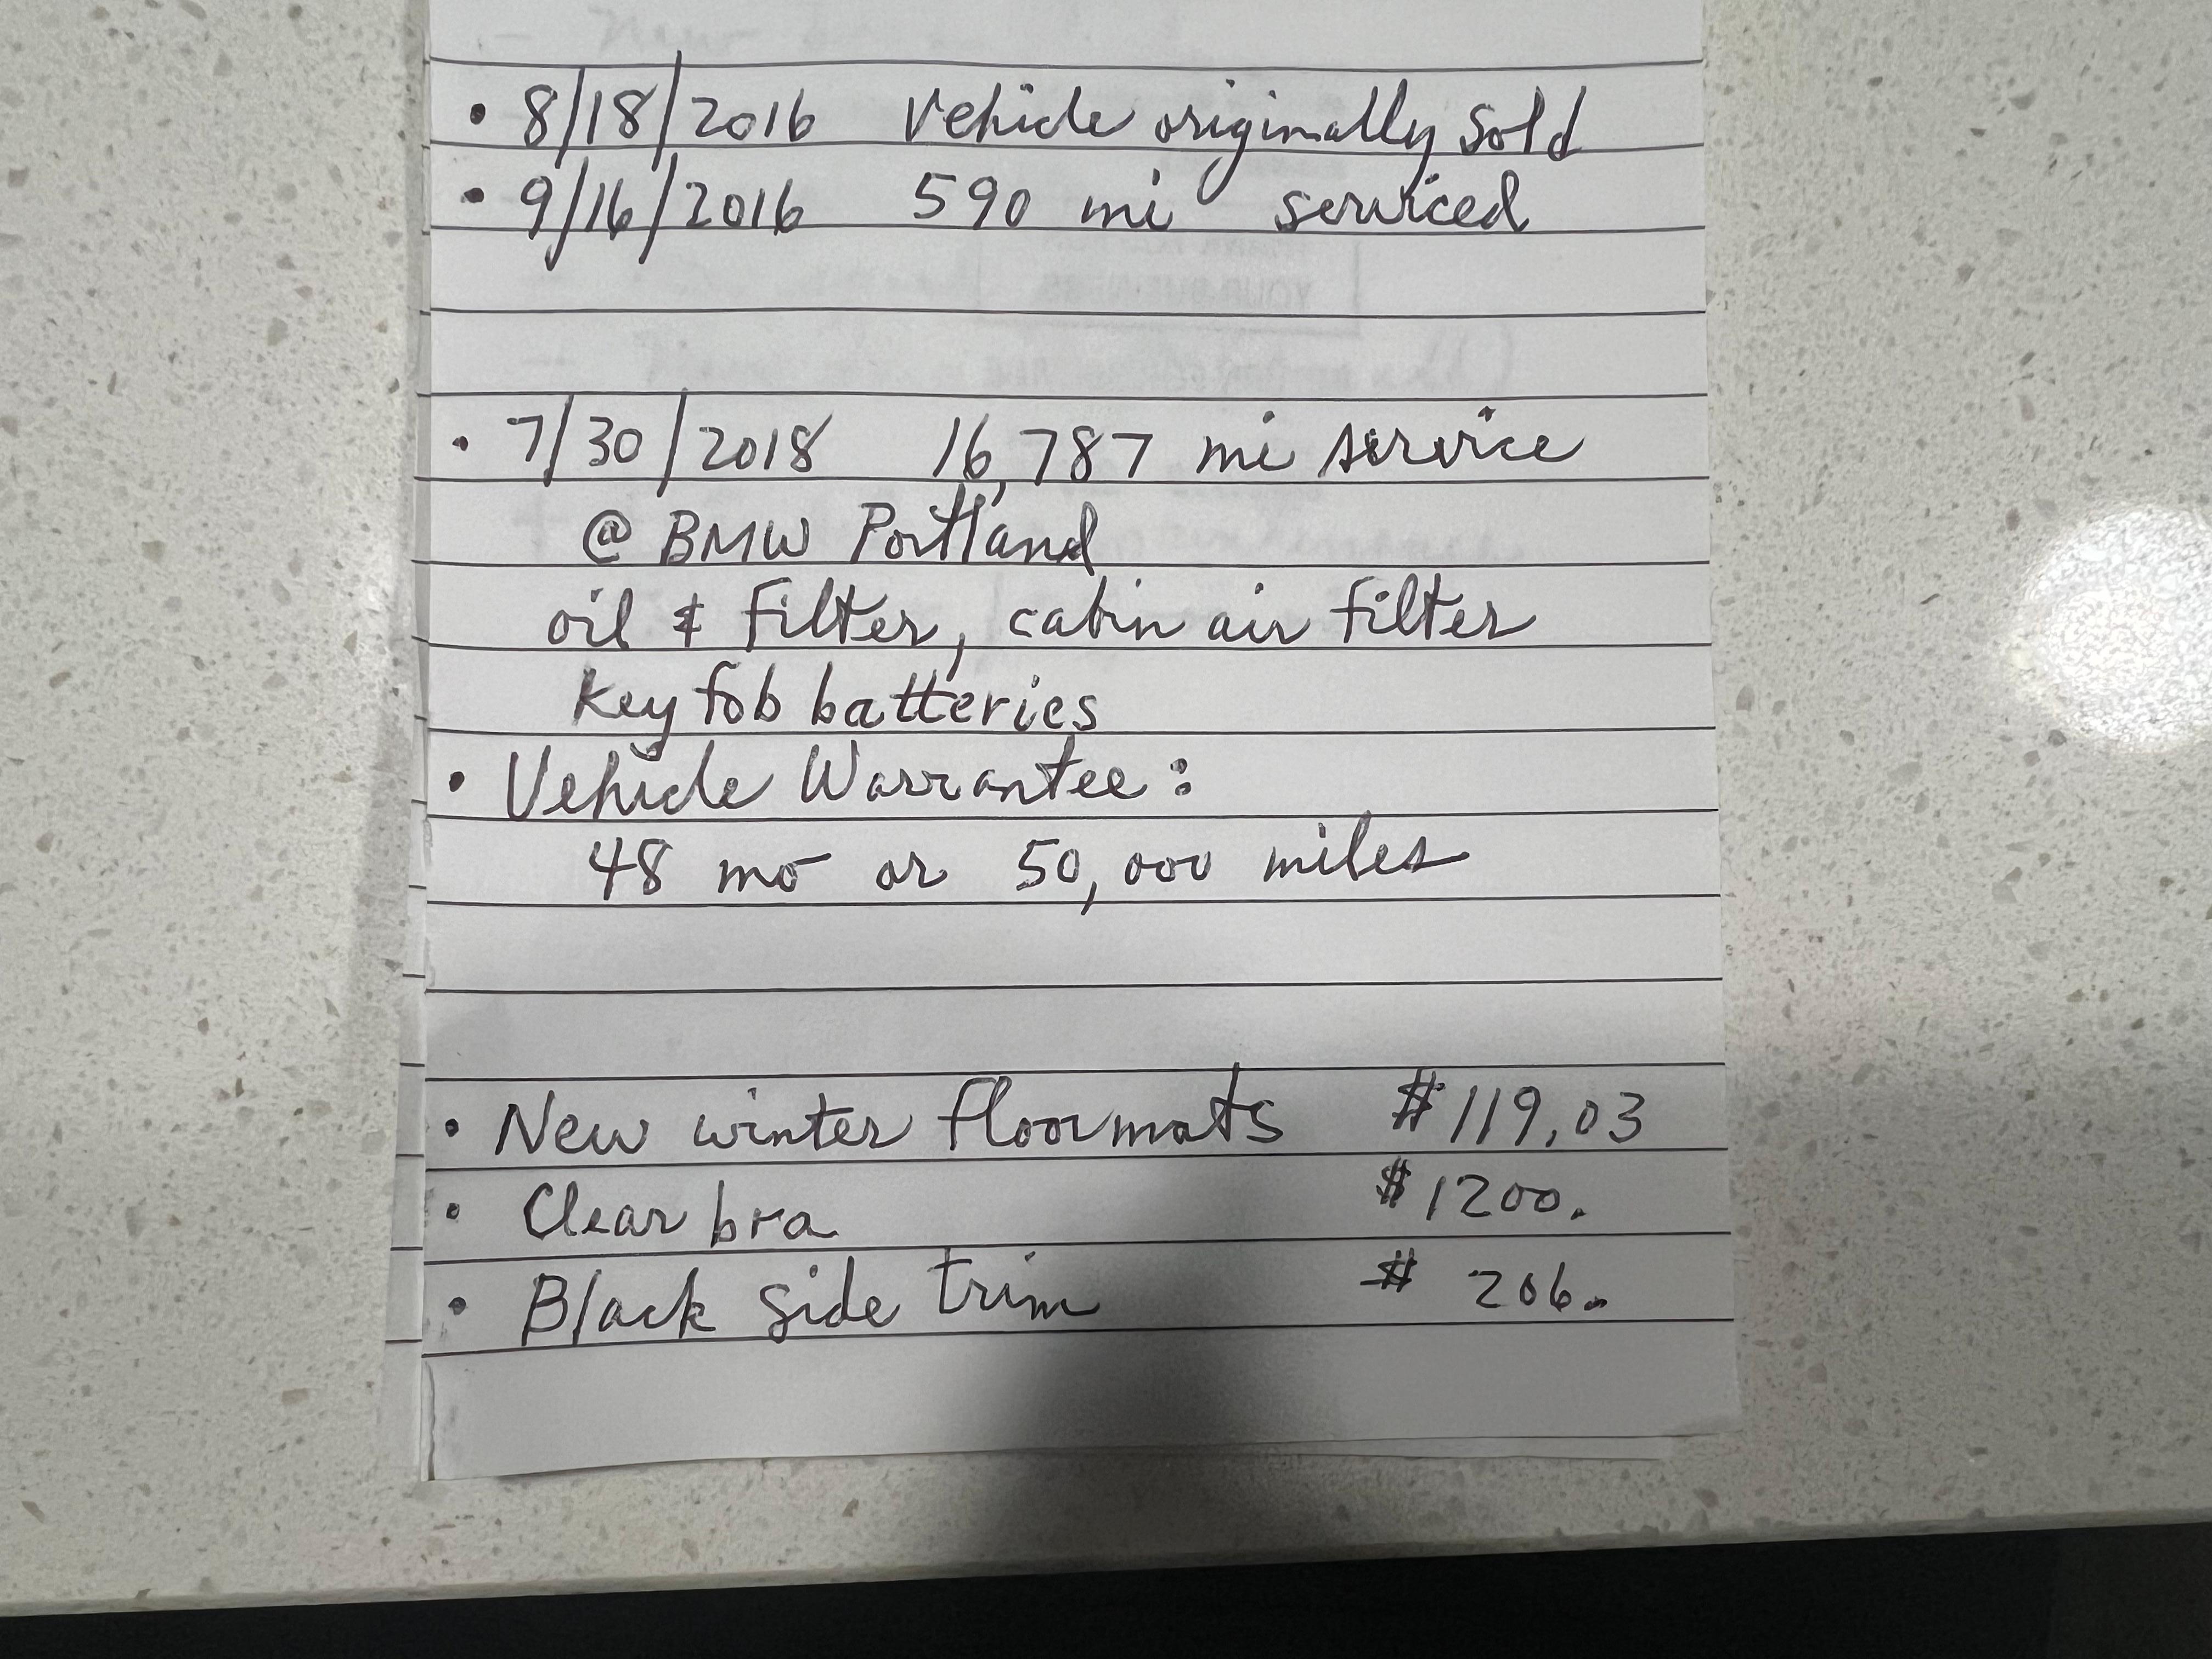 • 8/18/2016 Vehicle originally sold
• 9/16/2016 590 mi serviced
• 7/30/2018 16,787 mi service
@ BMW Portland
oil & filter, cabin air filter
key fob batteries
• Vehicle Warrantee:
48 mo or 50,000 miles
• New winter floormats $119.03
• Clear bra $1200.
• Black side trim $ 206.